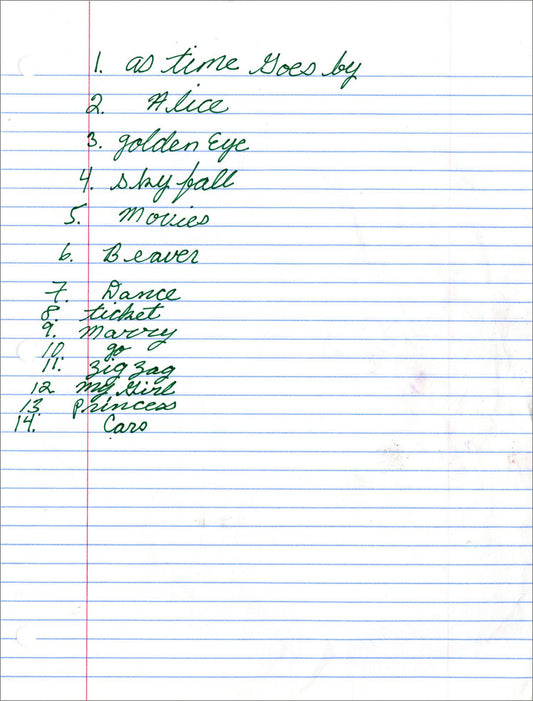 1. as time Goes by
2. Alice
3. golden Eye
4. sky fall
5. Movies
6. Beaver
7. Dance
8. ticket
9. Marry
10. go
11. zig zag
12 My Girl
13. princess
14. Cars